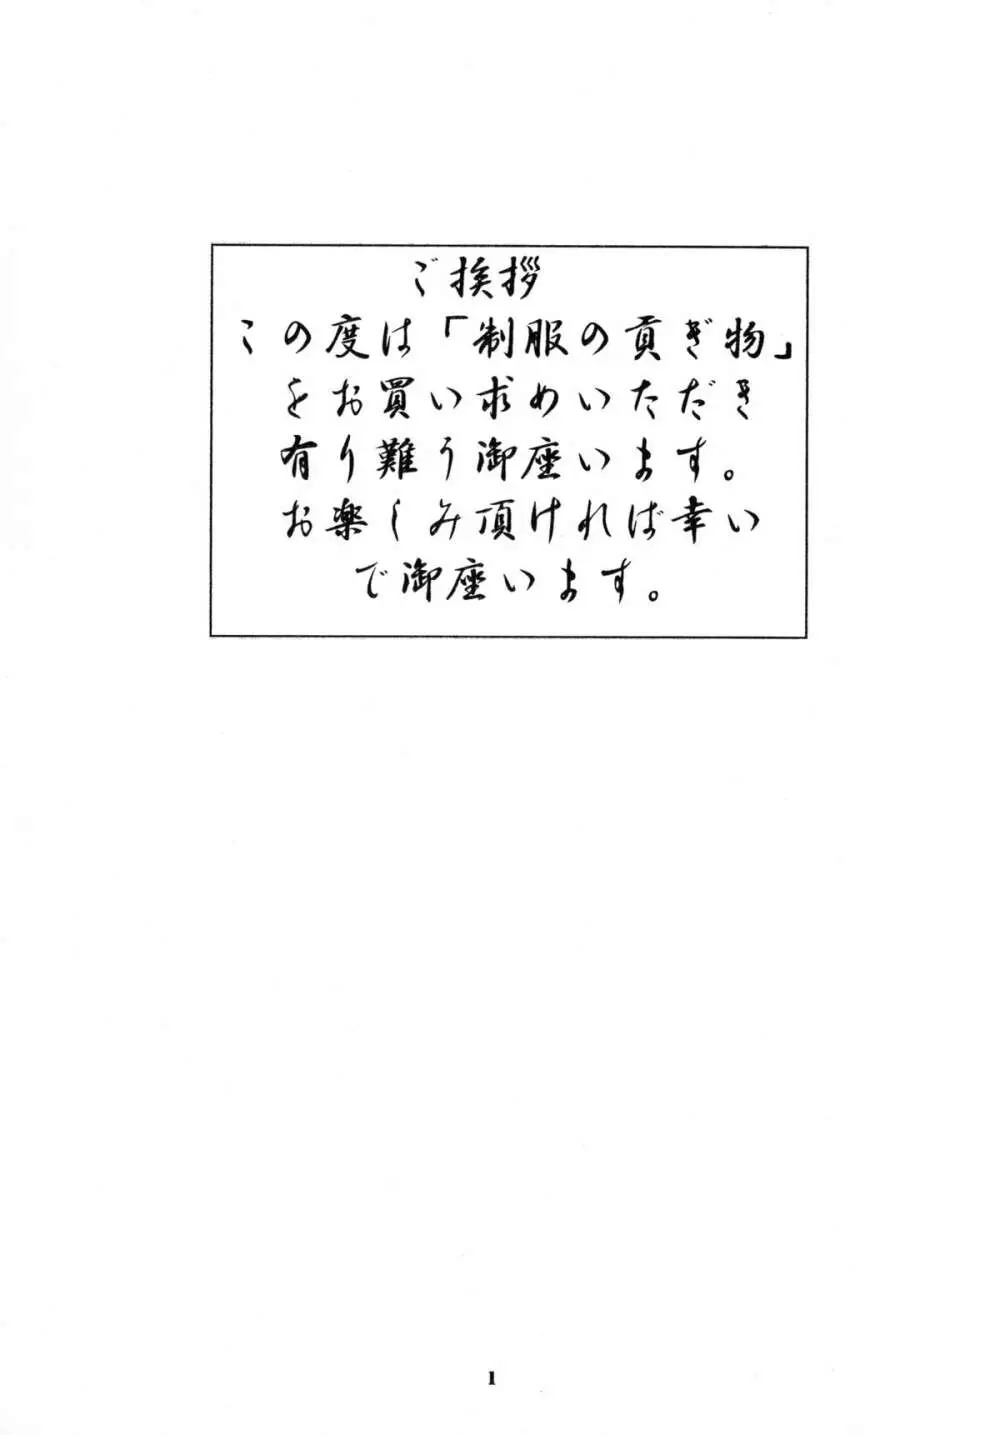 ご挨拶
この度は「制服の貢ぎ物」
をお買い求めいただき
有り難う御座います。
お楽しみ頂ければ幸い
で御座います。
1